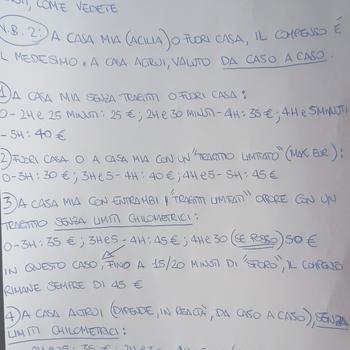 , COME VEDETE
N.B. 2: A CASA MIA (ACILIA) O FUORI CASA, IL COMPENSO È
IL MEDESIMO. A CASA ALTRUI, VALUTO DA CASO A CASO.
1) A CASA MIA SENZA TRAGITTI O FUORI CASA:
0-2H E 25 MINUTI: 25 €; 2H E 30 MINUTI-4H: 35 €; 4H E 5 MINUTI
-5H: 40 €
2) FUORI CASA O A CASA MIA CON UN "TRAGITTO LIMITATO" (MAX EUR):
0-3H: 30 €; 3H E 5-4H: 40 €; 4H E 5-5H: 45 €
3) A CASA MIA CON ENTRAMBI I "TRAGITTI LIMITATI" OPPURE CON UN
TRAGITTO SENZA LIMITI CHILOMETRICI:
0-3H: 35 €; 3H E 5-4H: 45 €; 4H E 30 (SE POSSO) 50 €
IN QUESTO CASO, FINO A 15/20 MINUTI DI "SFORO", IL COMPENSO
RIMANE SEMPRE DI 45 €
4) A CASA ALTRUI (DIPENDE, IN REALTÀ, DA CASO A CASO), SENZA
LIMITI CHILOMETRICI: